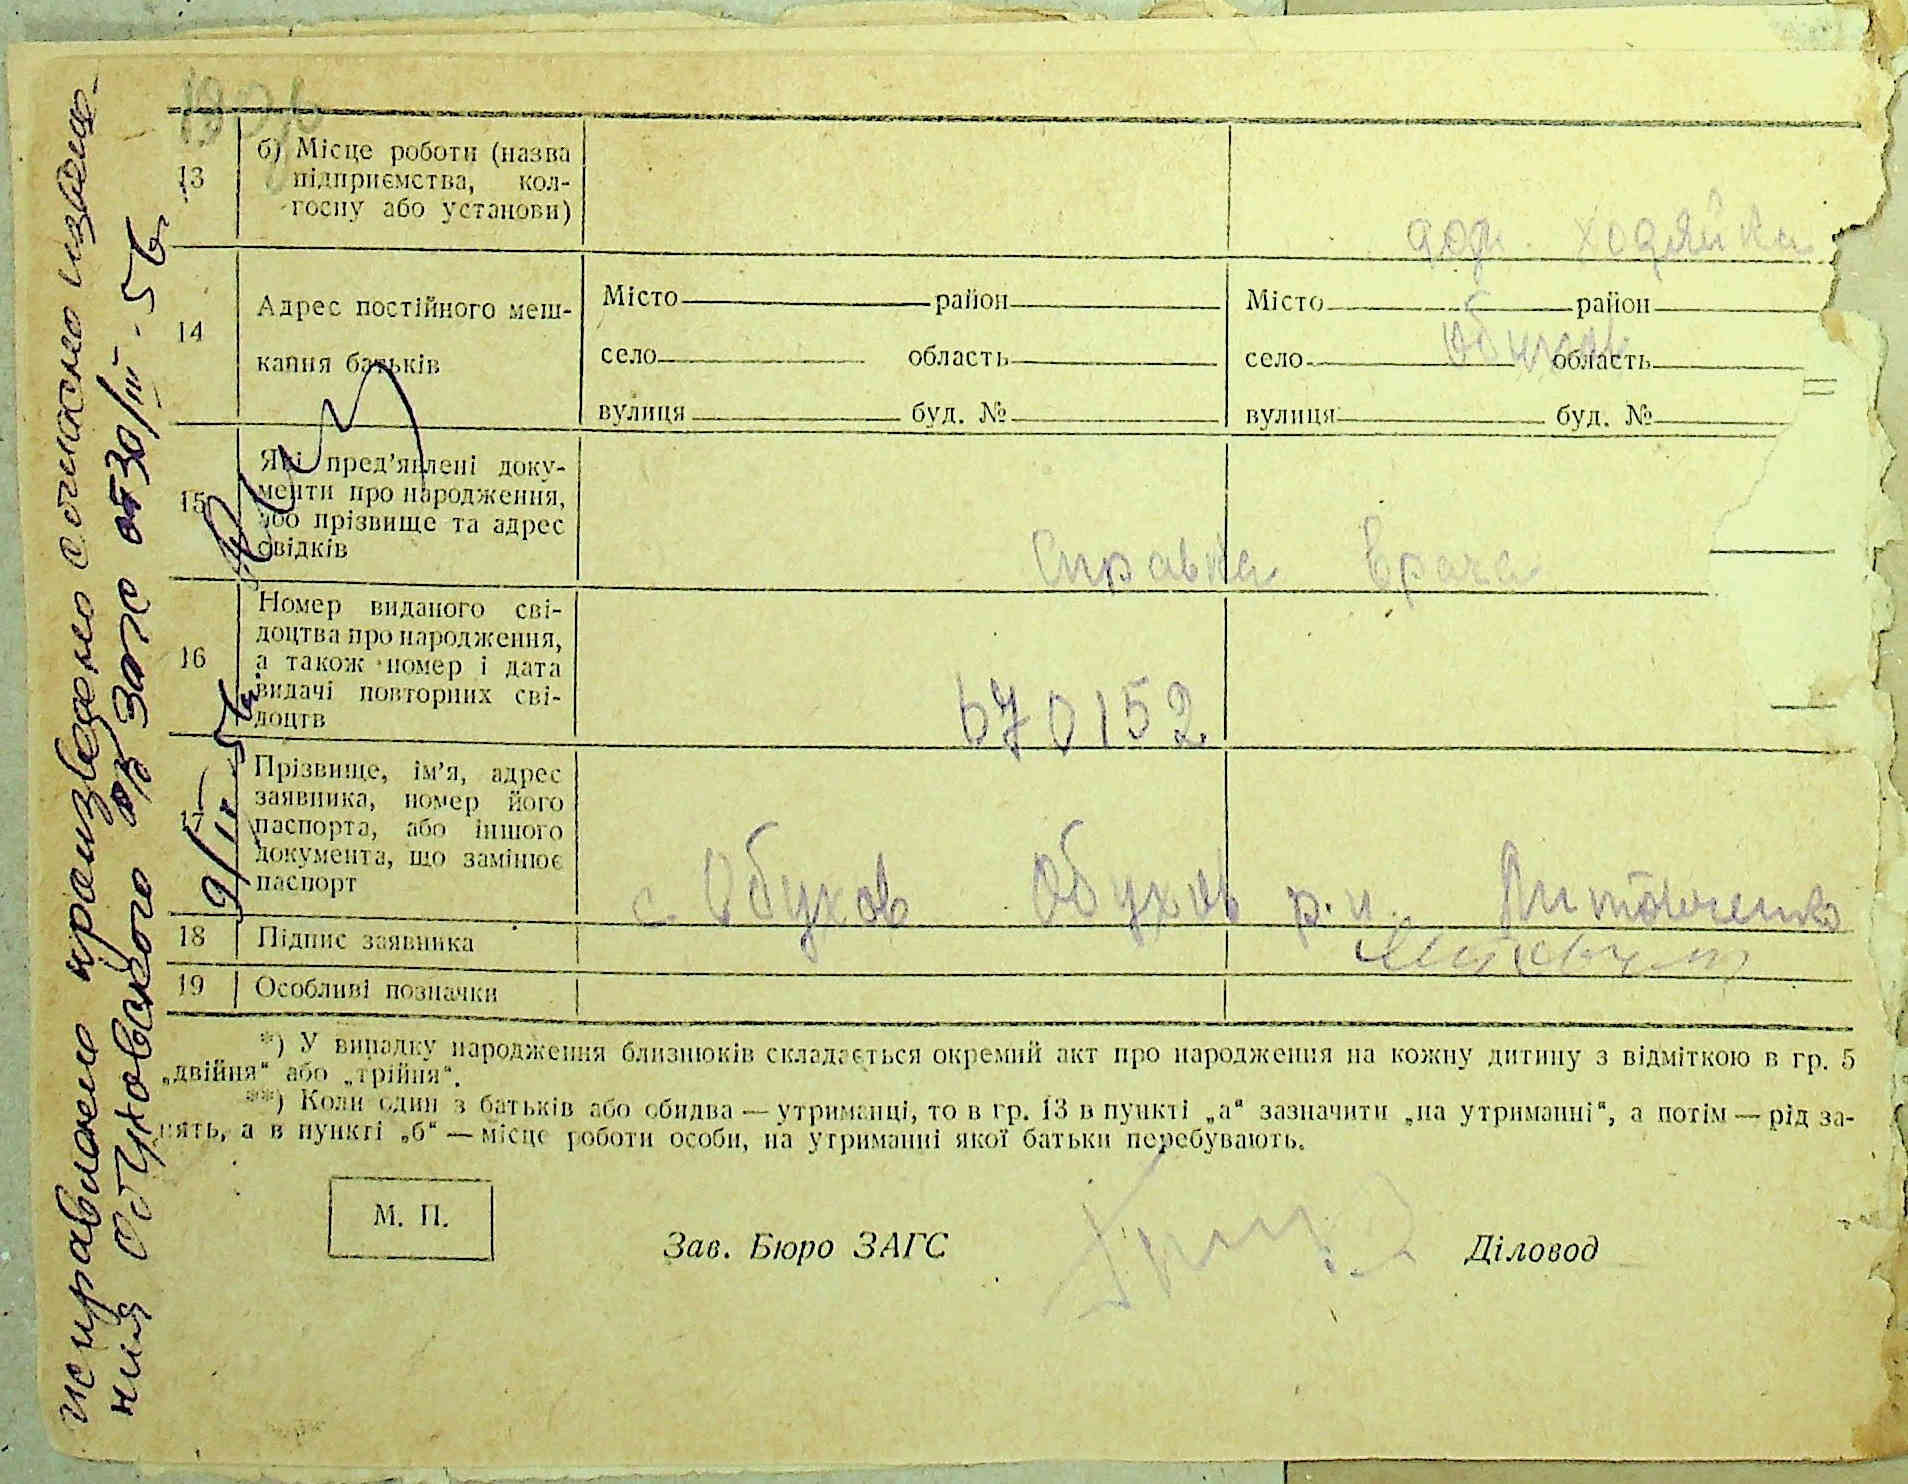 13
б) Місце роботи (назва
підприємства, кол-
госпу або установи)
дом. хозяйка
14
Адрес постійного меш-
кання батьків
Місто район
село область
вулиця буд. №
Місто район
село Обухов область
вулиця буд. №
15
Які пред’явлені доку-
менти про народження,
або прізвище та адрес
свідків
Справка врача
16
Номер виданого сві-
доцтва про народження,
а також номер і дата
видачі повторних сві-
доцтв
670152
17
Прізвище, ім’я, адрес
заявника, номер його
паспорта, або іншого
документа, що замінює
паспорт
с. Обухов Обухов р.н.
18
Підпис заявника
19
Особливі позначки
*) У випадку народження близнюків складається окремий акт про народження на кожну дитину з відміткою в гр. 5
„двійня“ або „трійня“.
**) Коли один з батьків або обидва — утриманці, то в гр. 13 в пункті „а“ зазначити „на утриманні“, а потім — рід за-
нять, а в пункті „б“ — місце роботи особи, на утриманні якої батьки перебувають.
М. П.
Зав. Бюро ЗАГС
Діловод
исправлено произведено согласно извеще-
ния Обуховского р/б загс от 30/III-56.
9/IV-56.